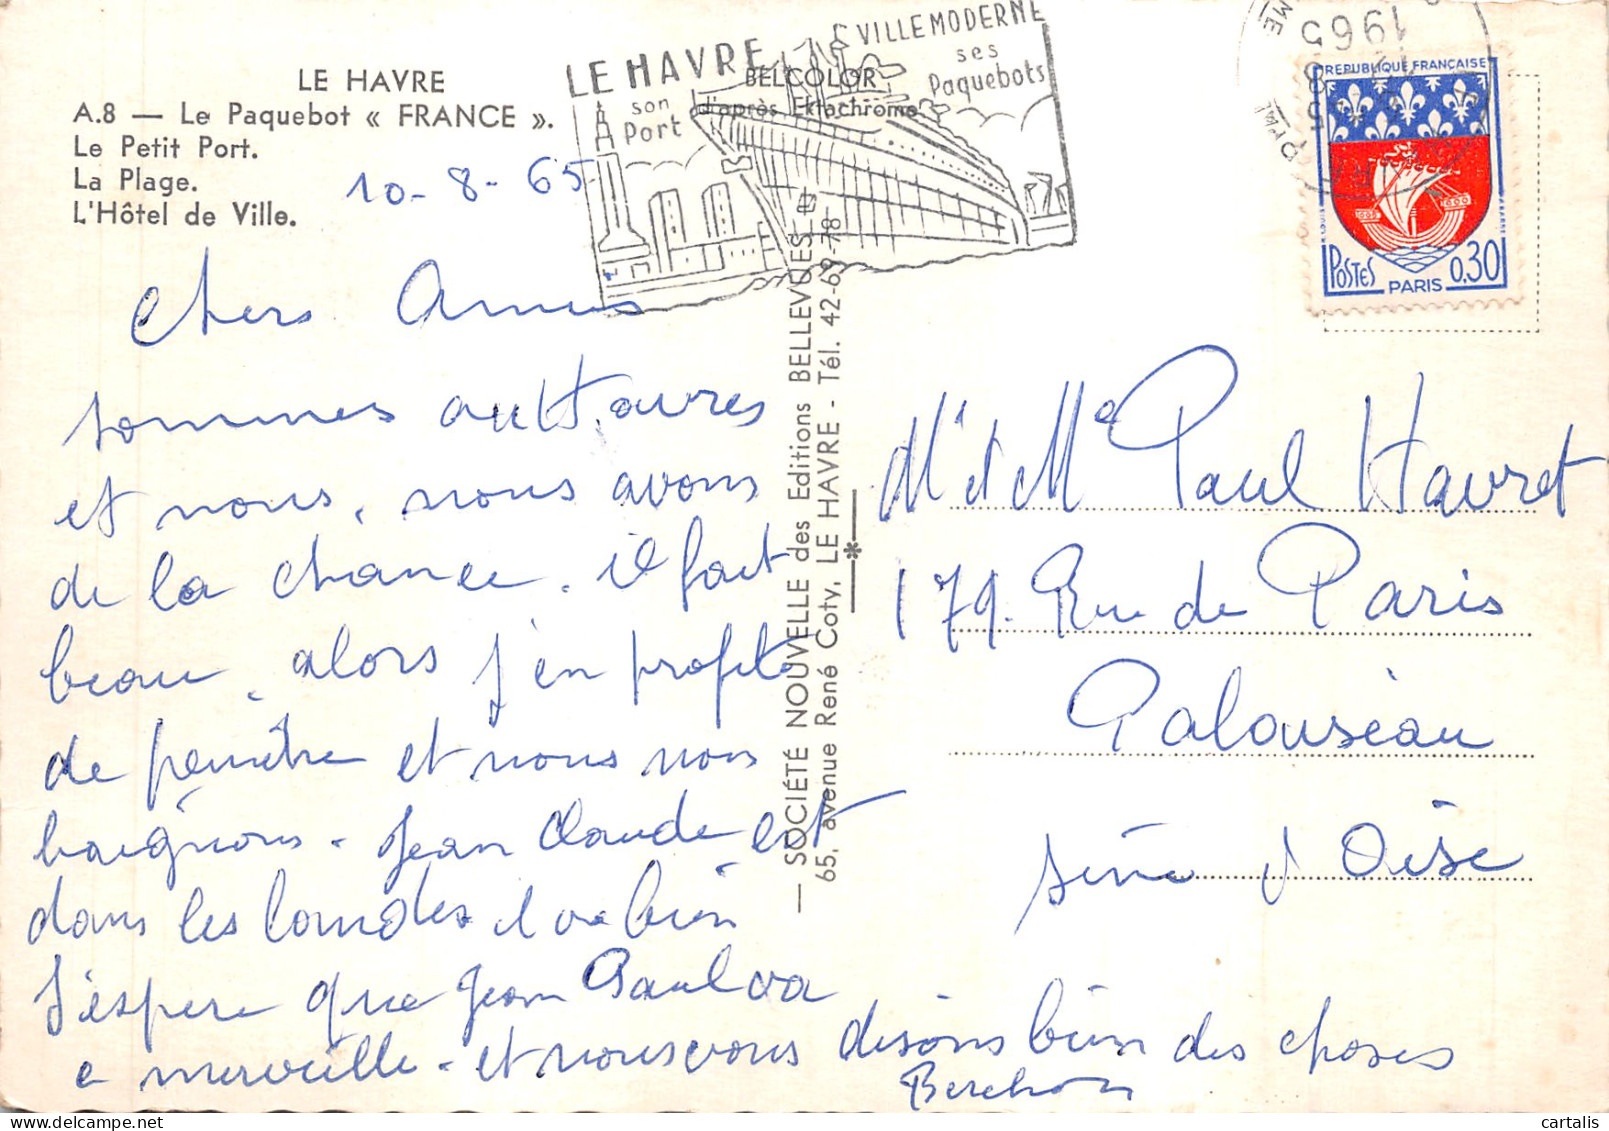 LE HAVRE
A.8 — Le Paquebot « FRANCE ».
Le Petit Port.
La Plage.
L'Hôtel de Ville.
10-8-65
LE HAVRE VILLE MODERNE
son Port
ses Paquebots
BELCOLOR
d'après Ektachrome
1965
REPUBLIQUE FRANÇAISE
POSTES 0,30
PARIS
Chers Amis
sommes au Havre
et nous, nous avons
de la chance. il fait
beau, alors j'en profite
de peindre et nous nous
baignons - Jean Claude est
dans les Landes il va bien
J'espere que Jean Paul va
a merveille - et nous vous disons bien des choses
— SOCIÉTÉ NOUVELLE des Editions BELLEVUES -
65, avenue René Coty, LE HAVRE - Tél. 42-69-78
Mr et Me Paul Havret
179. Rue de Paris
Palouseau
Seine d Oise
delcampe.net
cartalis